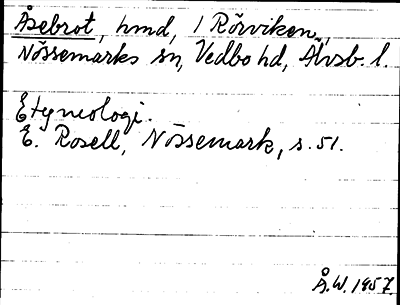 Åsebrot, hmd, 1 Rörviken,
Nössemarks sn, Vedbo hd, Älvsb. l.
Etymologi.
E. Rosell, Nössemark, s. 51.
Å.W. 1957.